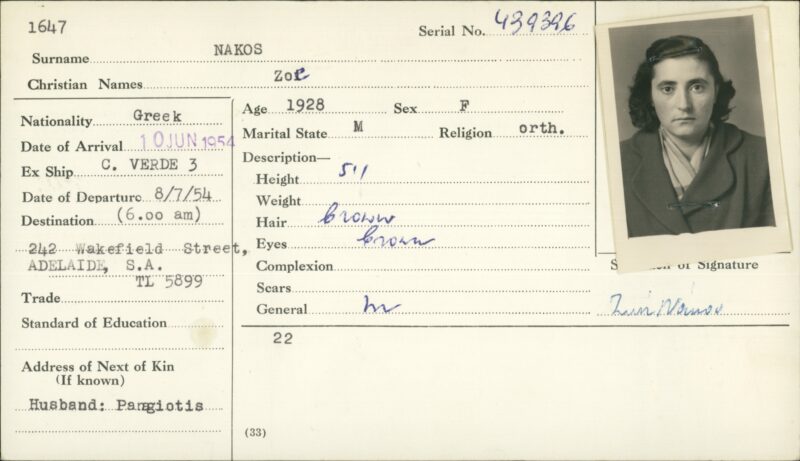 1647
Serial No. 439396
Surname NAKOS
Christian Names Zoe
Nationality Greek
Date of Arrival 10 JUN 1954
Ex Ship C. VERDE 3
Date of Departure 8/7/54
Destination (6.00 am)
242 Wakefield Street,
ADELAIDE, S.A.
TL 5899
Trade
Standard of Education
Address of Next of Kin
(If known)
Husband: Panagiotis
Age 1928 Sex F
Marital State M Religion orth.
Description—
Height 5'1
Weight
Hair brown
Eyes brown
Complexion
Scars
General
22
(33)
of Signature